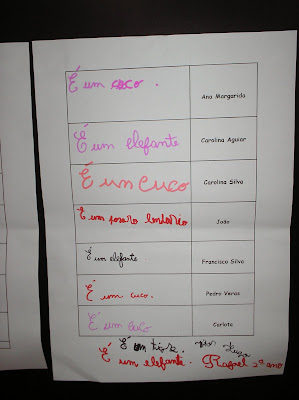 É um coco. Ana Margarida
É um elefante Carolina Aguiar
É um cuco Carolina Silva
É um João
É um elefante Francisco Silva
É um cuco. Pedro Veras
É um cuco Carlota
É um Hugo
É um elefante. Rafael 2º ano